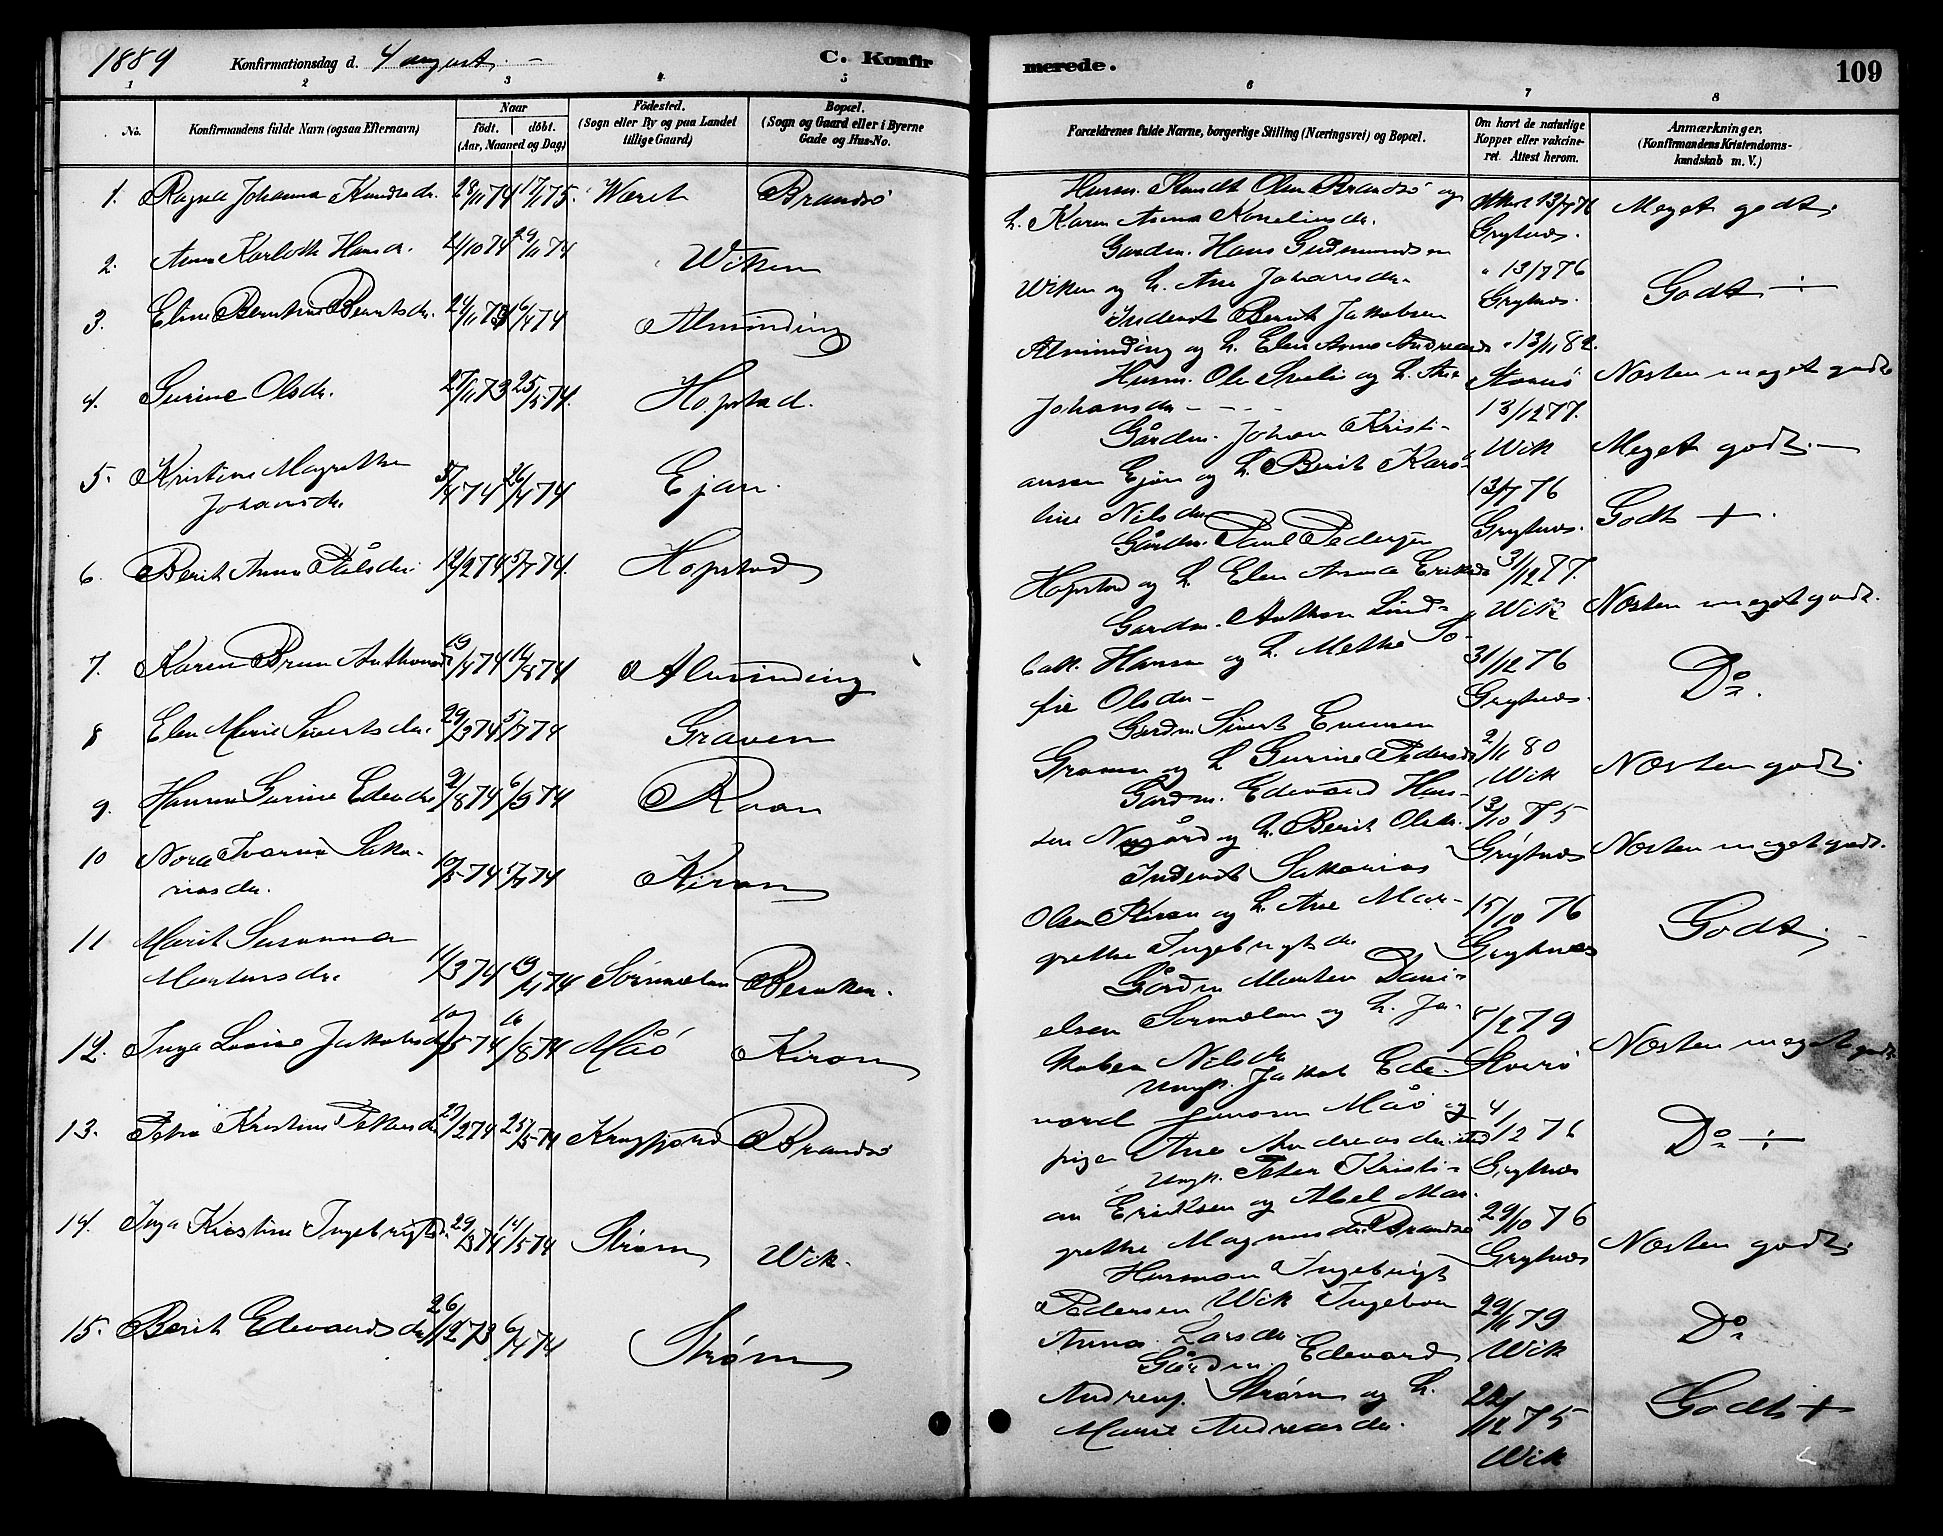 1889 Konfirmationsdag d. 4 august. C. Konfirmerede. 109
1 2 3 4 5 6 7 8
No.
Konfirmandens fulde Navn (ogsaa Efternavn)
Naar
født. døbt.
(Aar, Maaned og Dag)
Födested.
(Sogn eller By og paa Landet
tillige Gaard)
Bopæl.
(Sogn og Gaard eller i Byerne
Gade og Hus-No.
Forældrenes fulde Navne, borgerlige Stilling (Næringsvei) og Bopæl.
Om havt de naturlige
Kopper eller vakcine-
ret. Attest herom.
Anmærkninger.
(Konfirmandens Kristendoms-
kundskab m. V.)
1. Ragna Johanna Knudsdr. 28/11 74 17/1 75. Været Brandsö
Husm. Knudt Olsen Brandsö og
h. Karen Anna Kornelinsdr.
Attest 13/7 76
Grytnes.
Meget godt
2. Anna Karlotte Hansdr. 2/10 74 29/11 74 Wiken
Gardm. Hans Gudmundsen
Wiken og h. Ane Johansdr.
" 13/7 76
Grytnes.
Godt ÷
3. Eline Berntine Berntsdr. 24/11 73 6/4 74 Alminding
Inderst Bernt Jakobsen
Alminding og h. Elen Anna Andreasdr
" 13/11 82.
Storø
Næsten meget godt
4. Gurine Olsdr. 27/11 73 25/5 74. Hopstad.
Husm. Ole og h. Ane
Johansdr - - -
13/12 77.
Wik
Meget godt.
5. Kristine Magrethe
Johansdr. 5/4 74 26/4 74 Ejan.
Gårdm. Johan Kristi-
ansen Ejan og h. Berit Karo-
line Nilsdr
13/7 76
Grytnes.
Godt +
6. Berit Anna Pålsdr. 12/2 74 5/7 74. Hopstad
Gårdm. Paul Pedersen
Hopstad og h. Elen Anna Eriksdr
31/12 77.
Wik
Næsten meget godt.
7. Karen Brun Anthonsdr 19/4 74 12/8 74 Alminding
Gardm. Anthon Lind-
bak Hansen og h. Methe So-
fie Olsdr -
31/12 76
Grytnes.
Do.
8 Elen Marie Sivertsdr. 29/3 74 5/7 74 Graven
Gardm Sivert Evensen
Graven og h Gurine Pedersdr
2/11 80
Wik
Næsten godt.
9. Hanna Gurine Edvdr 2/8 74 6/9 74 Raan
Gardm. Edevard Han-
sen Nygård og h. Berit Olsdr.
13/10 75
Grytnes
Næsten meget godt.
10 Nora Ivarna Saka-
riasdr. 10/5 74 5/7 74 Kiran
Inderst Sakarias
Olsen Kiran og h. Ane Mar-
grethe Ingebrigtsdr
15/10 76
Grytnes
Godt.
11 Marit Susanna
Martensdr. 11/3 74 19/4 74 Sörmælan Bernken.
Gårdm Morten Dani-
elsen Sormelan og h. Ja-
kobea Nilsdr
8/2 79
Stoerö
Næsten meget godt
12. Inga Lovise Jakobsdr 10/5 74 16/8 74 Måö Kiran
Ungk. Jakob Ede-
vard Jensen Måö og
pige Ane Andreasdr itd
4/12 76
Grytnes
Do ÷
13. Petra Kristine Petersdr 27/2 74 25/5 74 Krogfjord Brandsö
Ungk. Peter Kristi-
an Eriksen og Abel Mar-
grethe Magnusdr. Brandsö
29/10 76
Grytnes
Næsten godt.
14. Inga Kirstine Ingebrigtsdr 29/3 74 14/5 74 Strøm Wik.
Husman Ingebrigt
Pedersen Wik Ingebor
Anna Larsdr.
29/11 79
Wik
Do
15. Berit Edevardsdr 26/12 73 6/4 74 Strøm
Gårdm. Edevard
Andreas. Strøm og h.
Marie Andreasdr.
22/12 75
Wik
Godt +